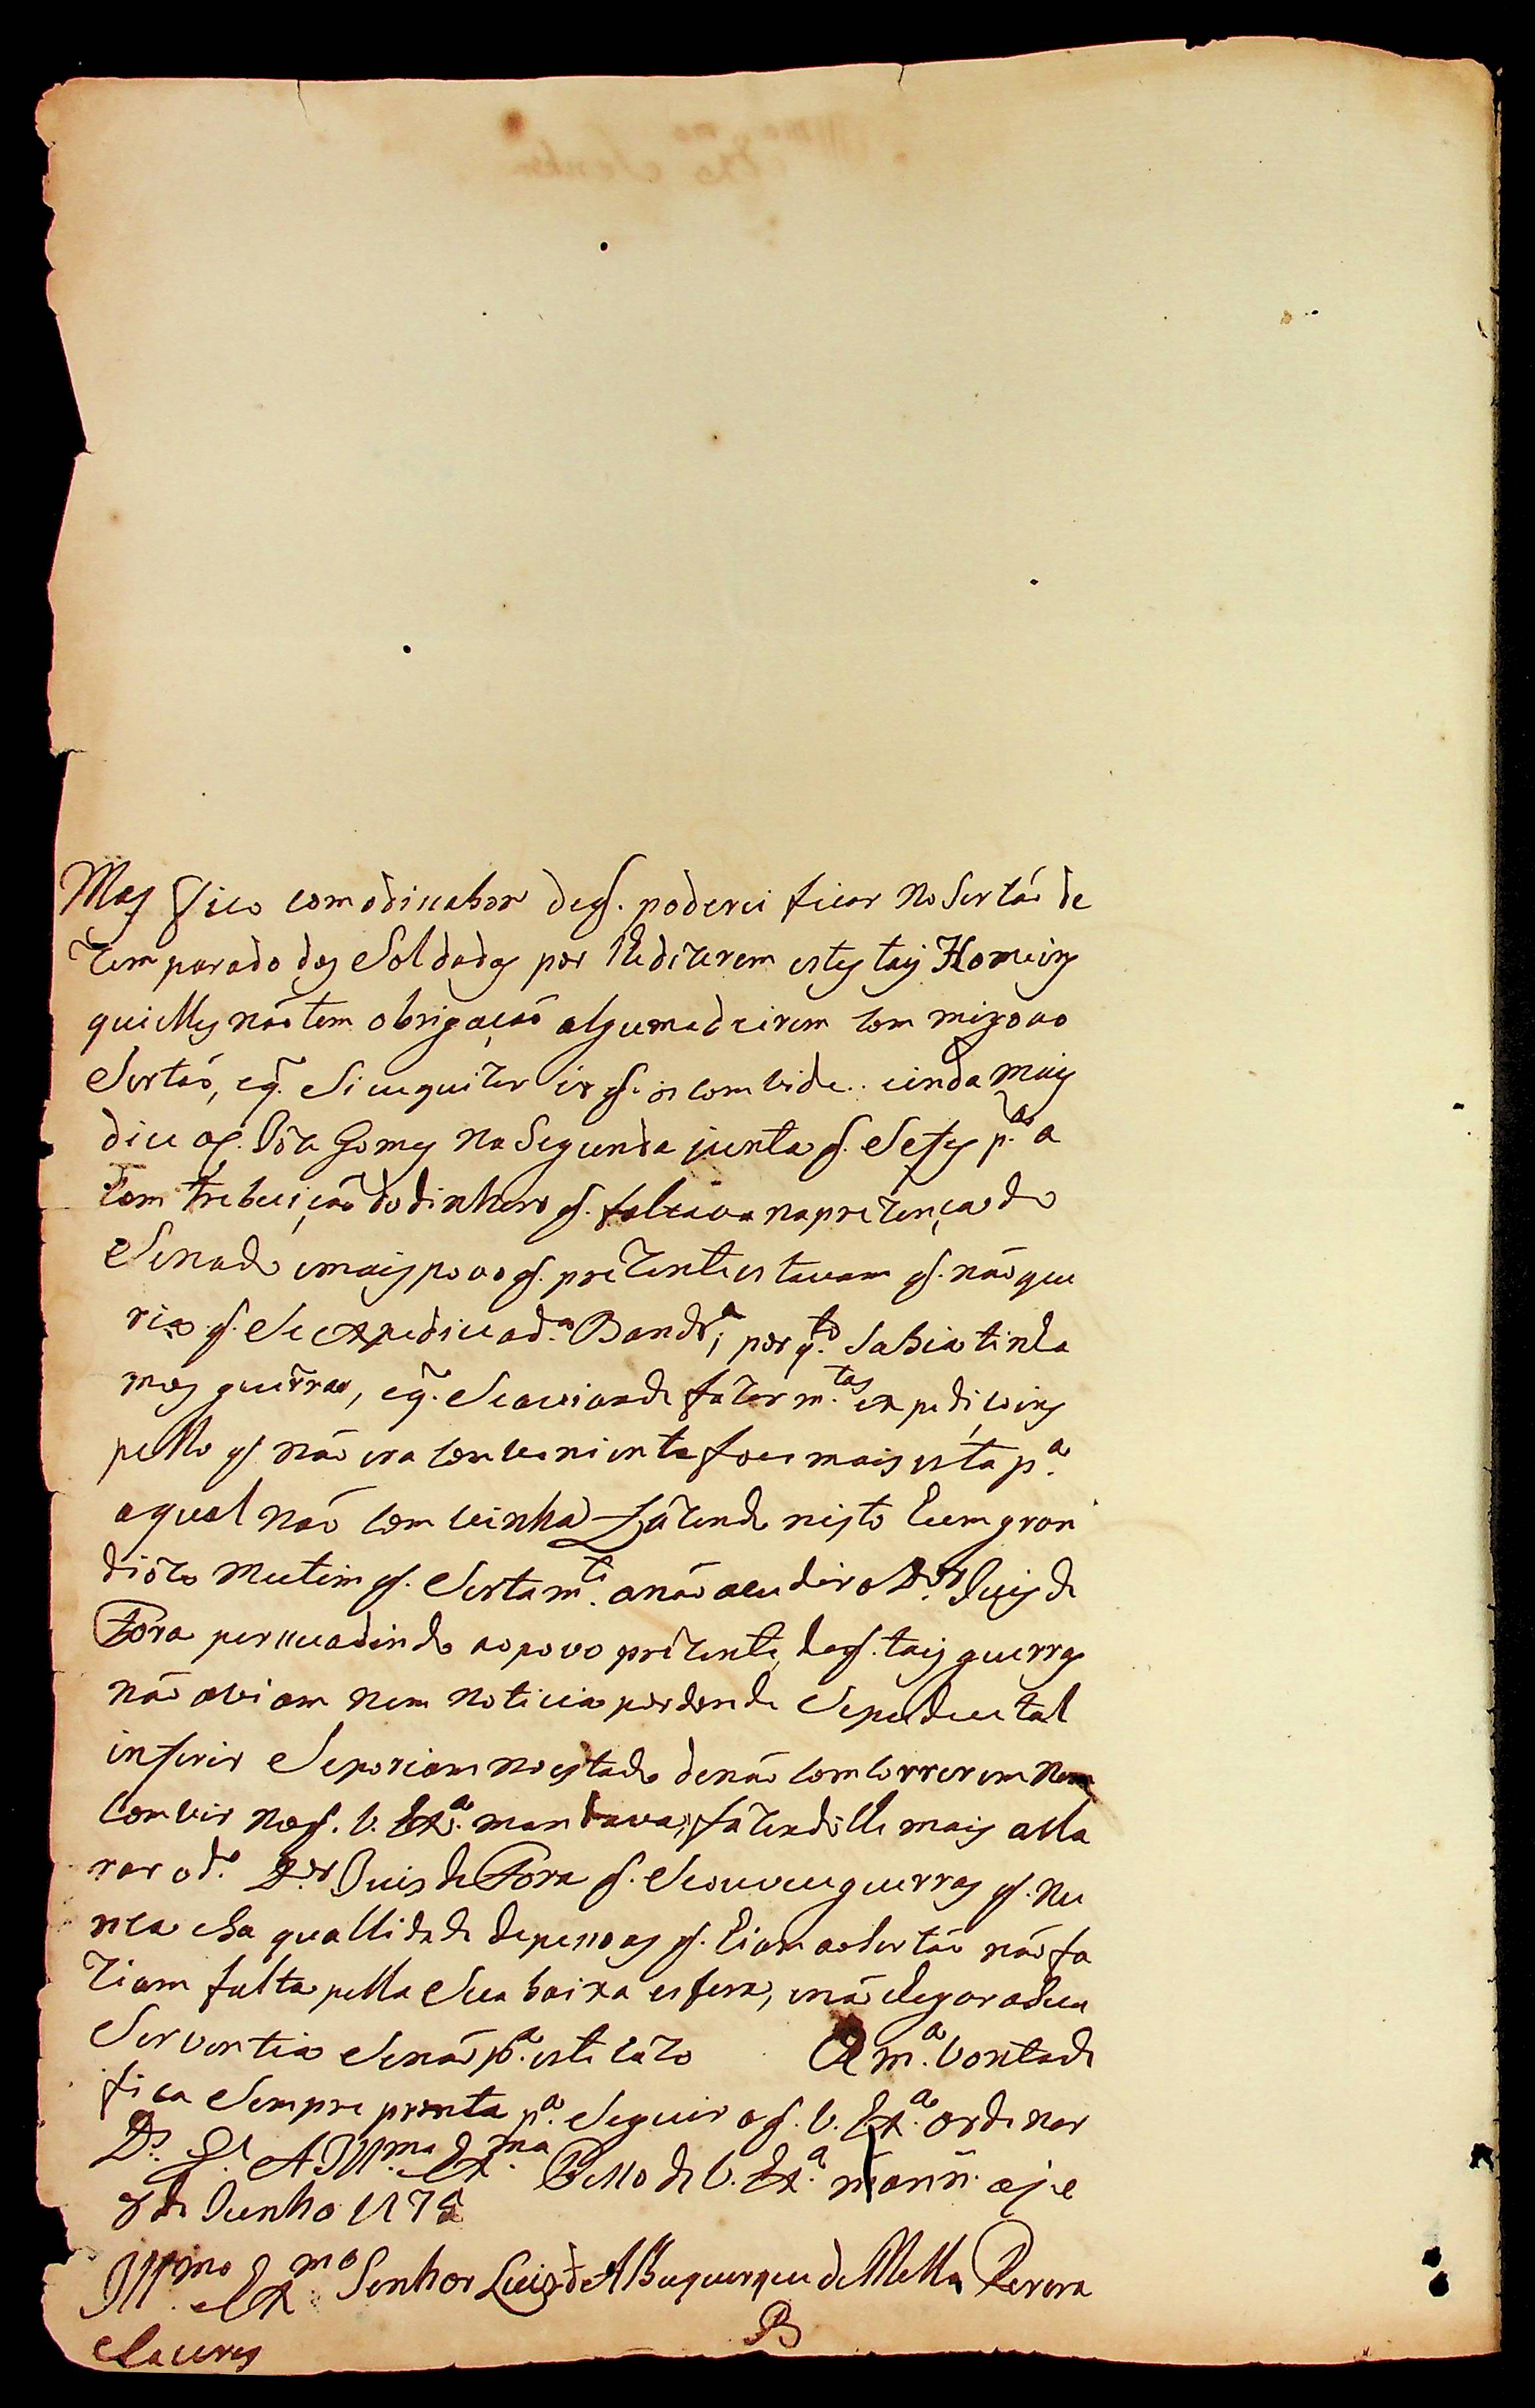 Mas fico com odicabor deq. poderei ficar no Sertaõ de
Zem parado dos Soldados por lhe dizerem estes tais Homeins
que elles naõ tem obrigaçaõ alguma de irem com migo ao
Sertaõ, e q. Se eu quizer ir q. os com vide.. einda mais
dice o q. Joze Gomes na Segunda junta q. Sefes p.a a
Com trebuiçaõ do dinheiro q. faltava na prezença do
Senado emais povo q. prezente estavam q. naõ que
ria q. Se expedice ad.a Bandr.a; por q.to Sabia tinha
mos guerras, e q. Se aviaõ de fazer m.tas expediçoins
pello q. naõ era comveniente fose mais esta p.a
aqual naõ com vinha fazendo nisto hum gran
diozo Mutim q. Sertam.te anaõ acudir o D.or Juis de
Fora persuadindo ao povo prezente, deq. tais guerras
naõ aviam nem noticia por donde Sepudece tal
inferir Seporiam no estado denaõ comcorrerem nem
com vir noq. V. Ex.a mandava, fazendolhe mais acla
rar o d.o D.or Juis de Fora q. Se ouvece guerras q. nu
nca esa quallidade depessoas q. hiam ao Sertaõ naõ fa
ziam falta pella Sua baixa esfera, enaõ chegar a Sua
Serventia Senaõ p.a este cazo A m.a Vontade
fica Sempre pronta p.a Seguir o q. V. Ex.a ordenar
D.s G.e A Ill.ma Ex.ma Pessoa de V. Ex.a m. ann.
8 de Junho 1775
Ill.mo Ex.mo Senhor Luis de Albuquerque de Mello Perera
Caceres